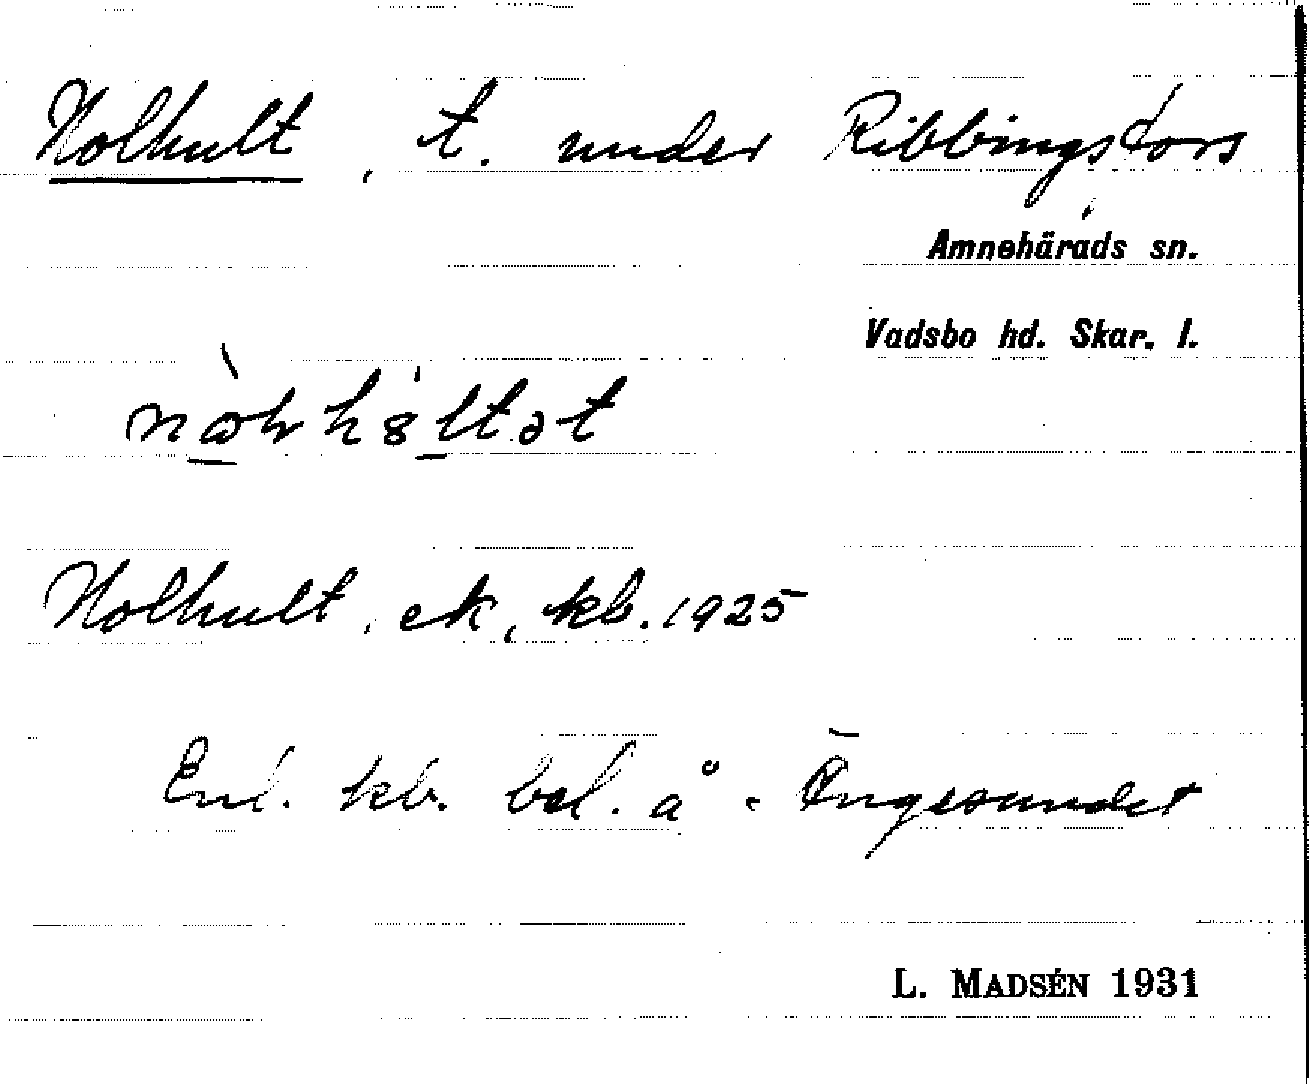 Nolhult, t. under Ribbingsfors
Amnehärads sn.
Vadsbo hd. Skar. l.
Nolhult, ek, kb. 1925
Enl. kb. bel. å Ö. Ängesundet
L. MADSÉN 1931